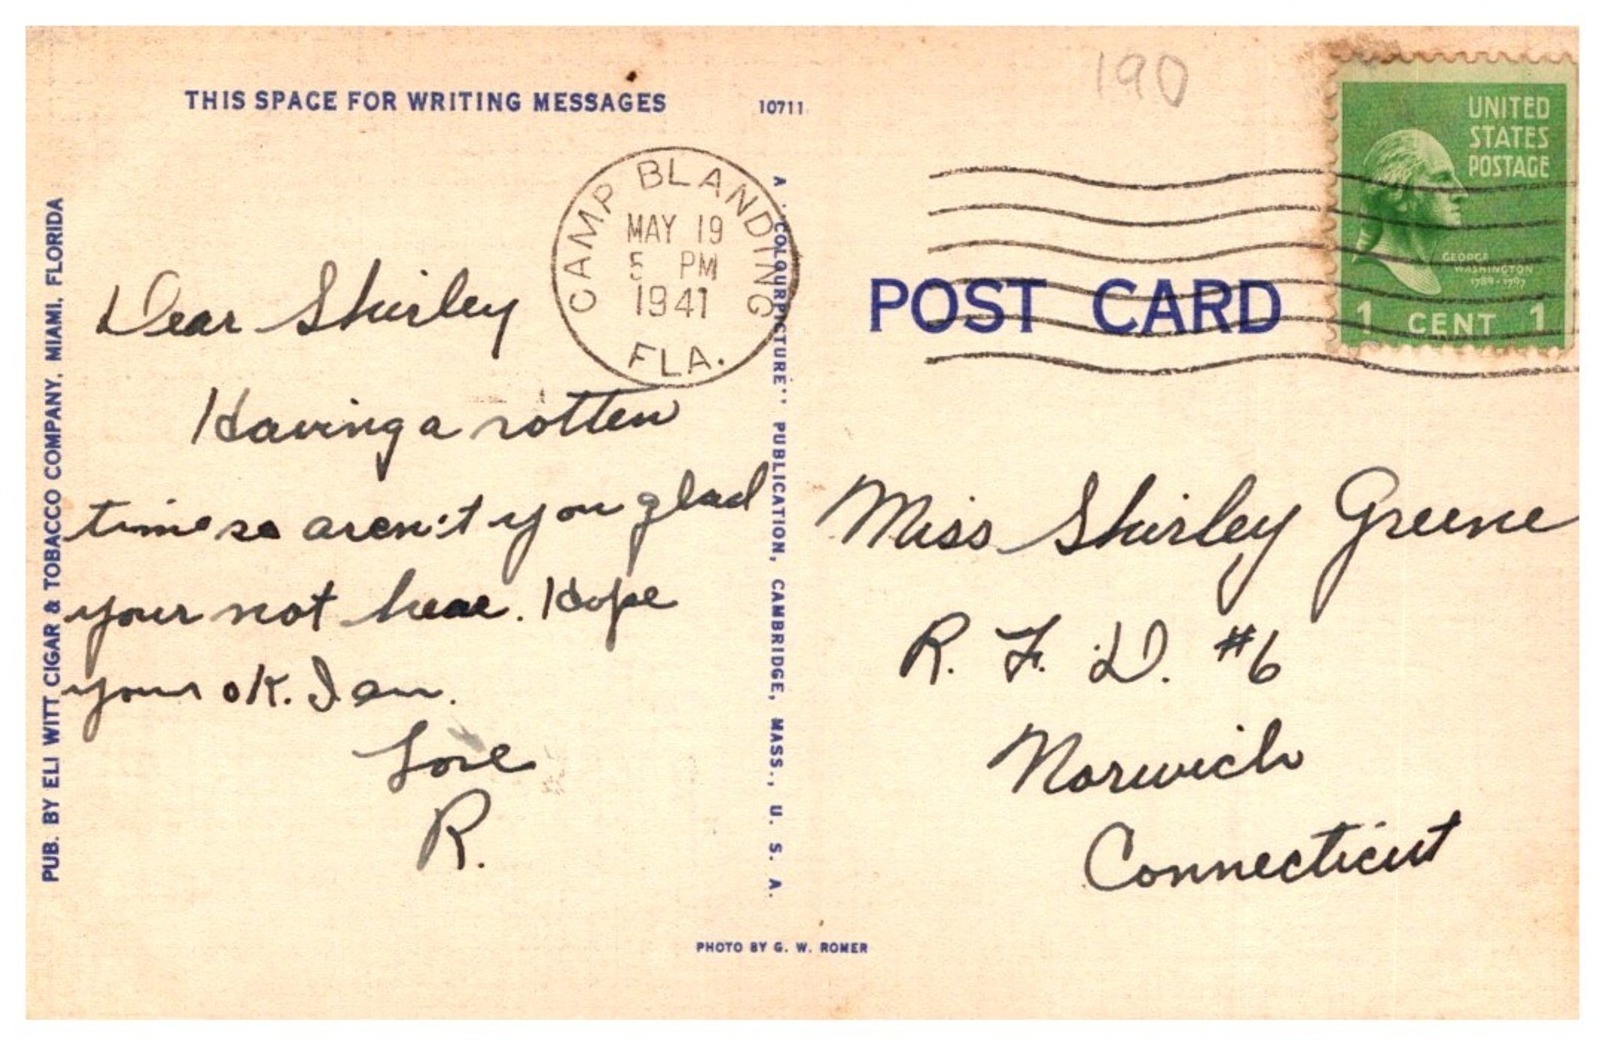 THIS SPACE FOR WRITING MESSAGES
10711
190
CAMP BLANDING
MAY 19
5 PM
1941
FLA.
UNITED
STATES
POSTAGE
GEORGE
WASHINGTON
1789-1797
1 CENT 1
POST CARD
Dear Shirley
Having a rotten
time so aren't you glad
your not hear. Hope
your ok. I am.
Love
R.
Miss Shirley Greene
R. F. D. #6
Norwich
Connecticut
PUB. BY ELI WITT CIGAR & TOBACCO COMPANY, MIAMI, FLORIDA
A "COLOURPICTURE" PUBLICATION, CAMBRIDGE, MASS., U. S. A.
PHOTO BY G. W. ROMER